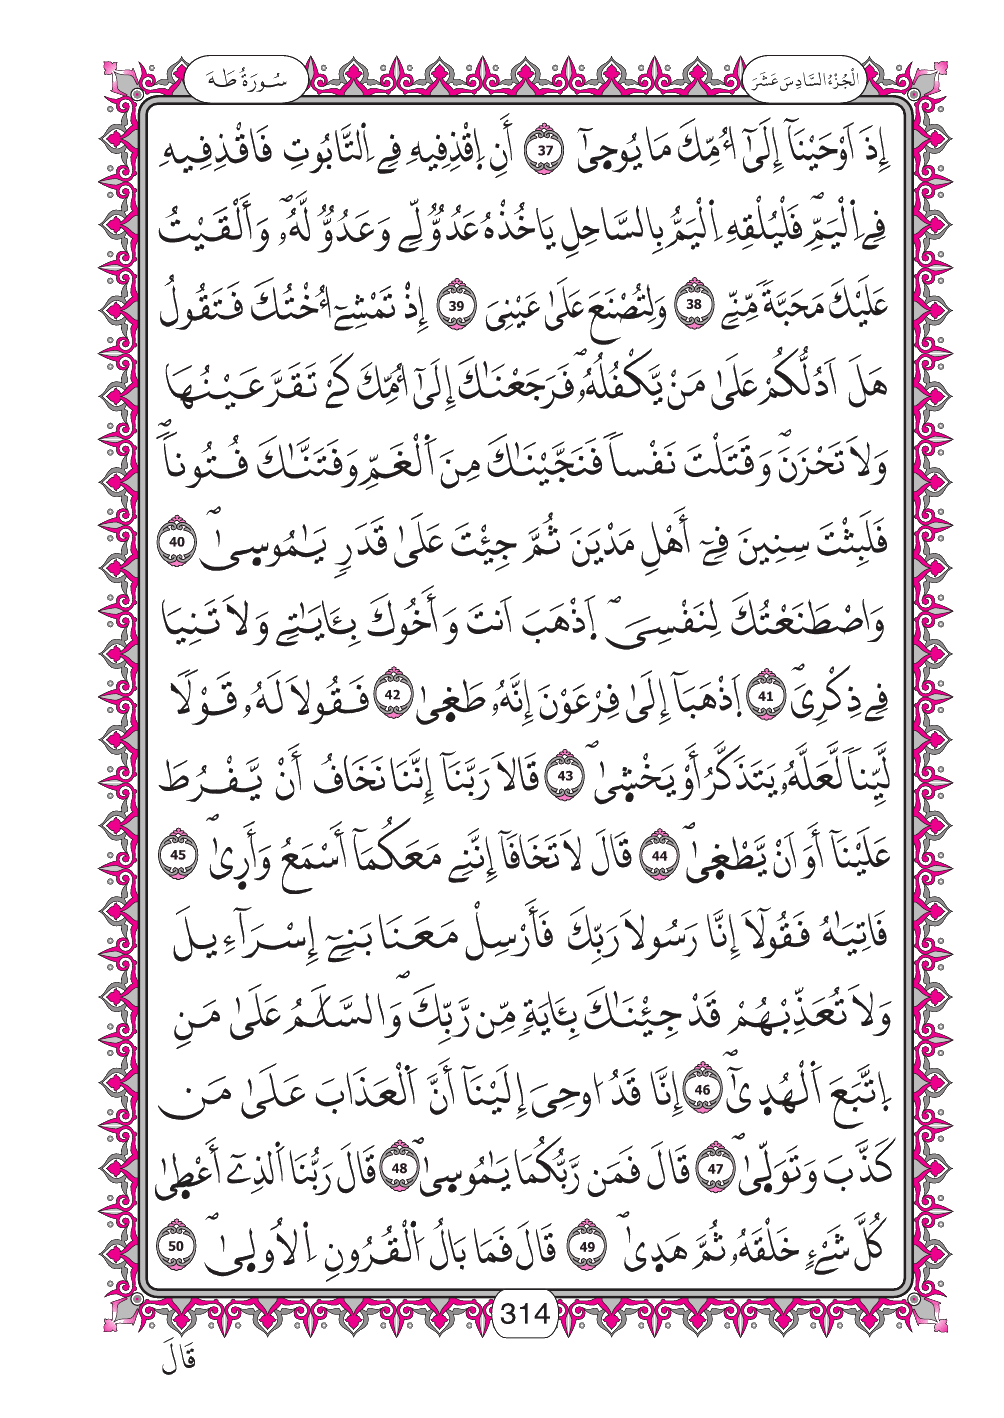 سُورَةُ طَهَ
اَلْجُزْءُ السَّادِسَ عَشَرَ
إِذَ اَوْحَيْنَآ إِلَىٰٓ أُمِّكَ مَا يُوحِىٰٓ 37 أَنِ اِ۪قْذِفِيهِ فِے اِ۬لتَّابُوتِ فَاقْذِفِيهِ
فِے اِ۬لْيَمِّۖ فَلْيُلْقِهِ اِ۬لْيَمُّ بِالسَّاحِلِ يَاخُذْهُ عَدُوّٞ لِّے وَعَدُوّٞ لَّهُۥۖ وَأَلْقَيْتُ
عَلَيْكَ مَحَبَّةٗ مِّنِّے 38 وَلِتُصْنَعَ عَلَىٰ عَيْنِىَ 39 إِذْ تَمْشِےٓ أُخْتُكَ فَتَقُولُ
هَلَ اَدُلُّكُمْ عَلَىٰ مَنْ يَّكْفُلُهُۥۖ فَرَجَعْنَٰكَ إِلَىٰٓ أُمِّكَ كَےْ تَقَرَّ عَيْنُهَا
وَلَا تَحْزَنَۖ وَقَتَلْتَ نَفْساٗ فَنَجَّيْنَٰكَ مِنَ اَ۬لْغَمِّ وَفَتَنَّٰكَ فُتُوناٗۖ
فَلَبِثْتَ سِنِينَ فِےٓ أَهْلِ مَدْيَنَ ثُمَّ جِئْتَ عَلَىٰ قَدَرٖ يَٰمُوسِىٰۖ 40
وَاصْطَنَعْتُكَ لِنَفْسِىَۖ اَ۪ذْهَبَ اَنتَ وَأَخُوكَ بِـَٔايَٰتِے وَلَا تَنِيَا
فِے ذِكْرِىَۖ 41 اَ۪ذْهَبَآ إِلَىٰ فِرْعَوْنَ إِنَّهُۥ طَغِىٰ 42 فَقُولَا لَهُۥ قَوْلاٗ
لَّيِّناٗ لَّعَلَّهُۥ يَتَذَكَّرُ أَوْ يَخْشِىٰۖ 43 قَالَا رَبَّنَآ إِنَّنَا نَخَافُ أَنْ يَّفْرُطَ
عَلَيْنَآ أَوَ اَنْ يَّطْغِىٰۖ 44 قَالَ لَا تَخَافَآ إِنَّنِے مَعَكُمَآ أَسْمَعُ وَأَرِىٰۖ 45
فَاتِيَٰهُ فَقُولَآ إِنَّا رَسُولَا رَبِّكَ فَأَرْسِلْ مَعَنَا بَنِےٓ إِسْرَآءِيلَ
وَلَا تُعَذِّبْهُمْ قَدْ جِئْنَٰكَ بِـَٔايَةٖ مِّن رَّبِّكَۖ وَالسَّلَٰمُ عَلَىٰ مَنِ
اِ۪تَّبَعَ اَ۬لْهُدِىٰٓۖ 46 إِنَّا قَدُ اُ۫وحِىَ إِلَيْنَآ أَنَّ اَ۬لْعَذَابَ عَلَىٰ مَن
كَذَّبَ وَتَوَلِّىٰۖ 47 قَالَ فَمَن رَّبُّكُمَا يَٰمُوسِىٰۖ 48 قَالَ رَبُّنَا اَ۬لذِےٓ أَعْطِىٰ
كُلَّ شَےْءٍ خَلْقَهُۥ ثُمَّ هَدِىٰۖ 49 قَالَ فَمَا بَالُ اُ۬لْقُرُونِ اِ۬لُاولِىٰۖ 50
314
قَالَ